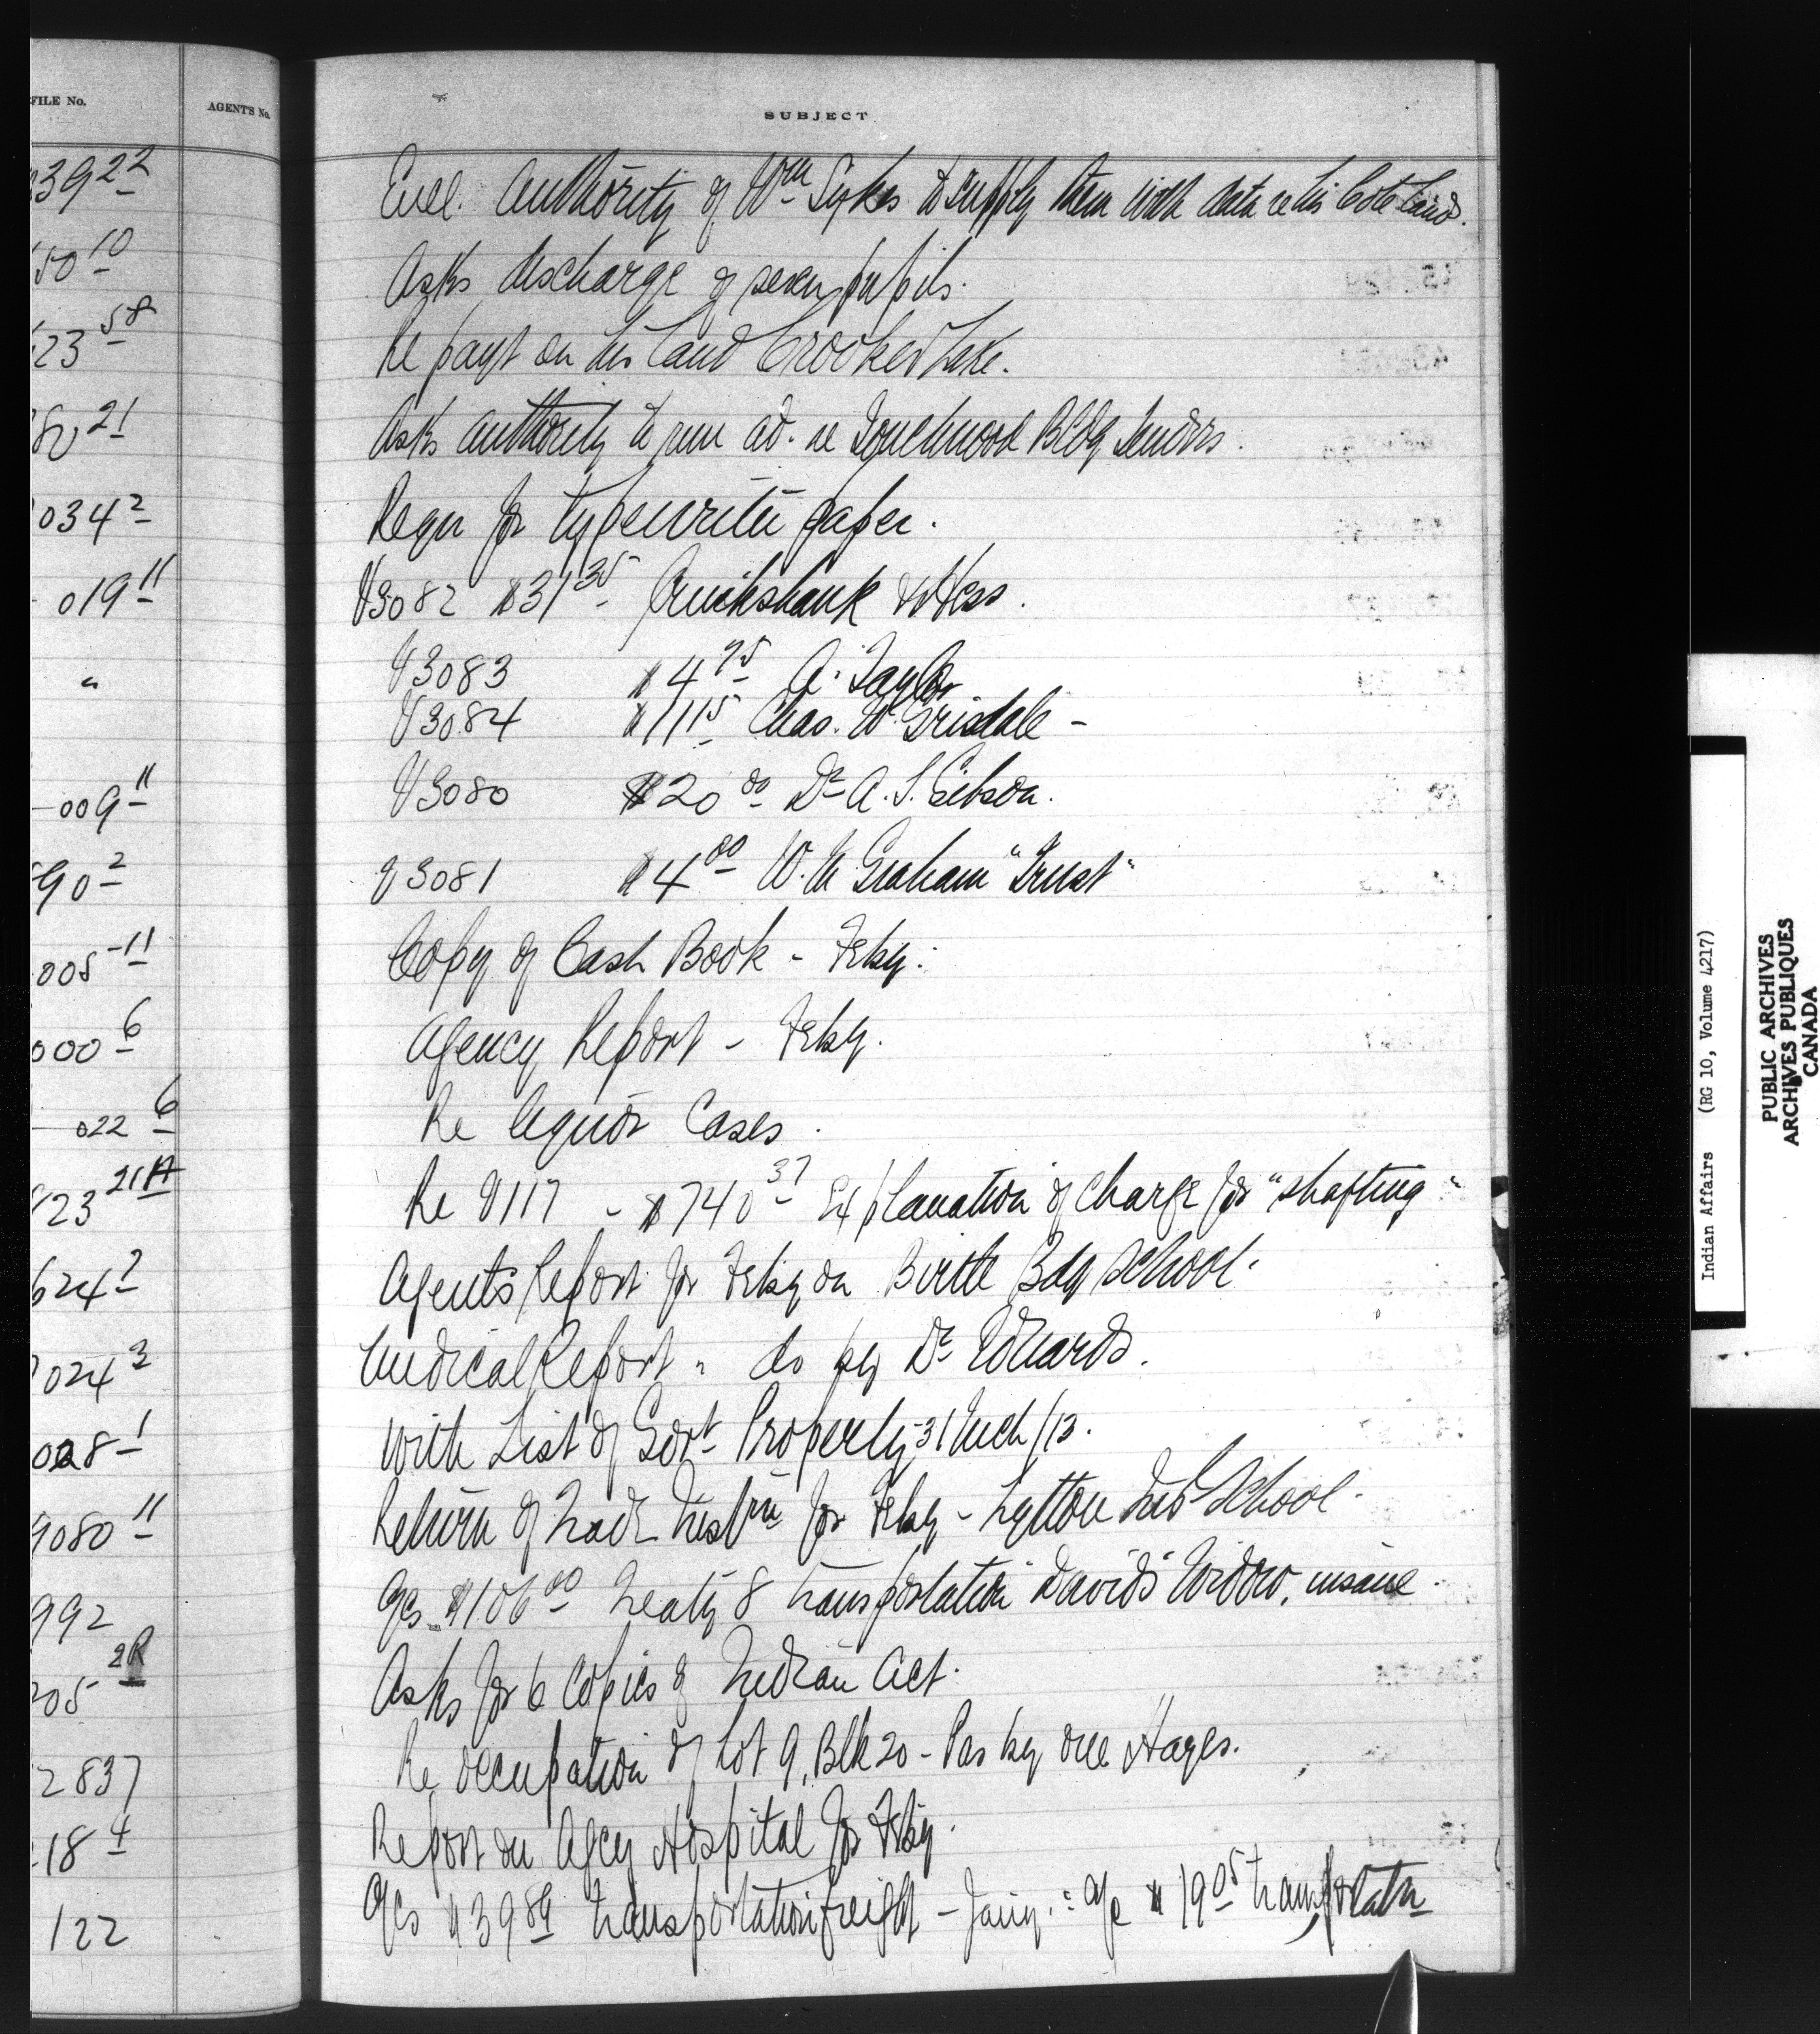 FILE No.
AGENTS No.
SUBJECT
3922
Encl. Authority of Wm Sykes to supply them with data re his Cote Land.
5010
Asks discharge of seven pupils.
2358
Re payt on his land Crooked Lake.
8021
Asks authority to run ad. re Touchwood Bldg Tenders.
0342
Reqn for typewriter paper.
01911
V3082 $31.35 Cruikshank & Hess.
"
V3083 $4.75 A. Taylor
V3084 $11.15 Chas. W. Grisdale -
00911
V3080 $20.00 Dr A. S. Gibson.
902
V3081 $4.00 W. M Graham "Trust"
005-11
Copy of Cash Book - Feby.
0006
Agency Report - Feby.
022 6
Re liquor Cases.
2321A
Re V117 - $740.37 Explanation of charge for "shafting"
6242
Agents Report for Feby on Birtle Bdg School.
0243
Medical Report " do by Dr Edwards.
0281
With List of Govt Property 31 Mch/13.
908011
Return of Trade Instrn for Feby - Lytton Ind School.
992
a/cs $106.00 Treaty 8 transportation David's Widow, insane.
205 2R
Asks for 6 copies of Indian Act.
2837
Re occupation of Lot 9, Blk 20 - Pas by one Hayes.
184
Report on Agcy Hospital for Feby.
122
a/cs $39.89 transportation freight - Jany: a/c $19.05 transportatn
Indian Affairs (RG 10, Volume 4217)
PUBLIC ARCHIVES
ARCHIVES PUBLIQUES
CANADA